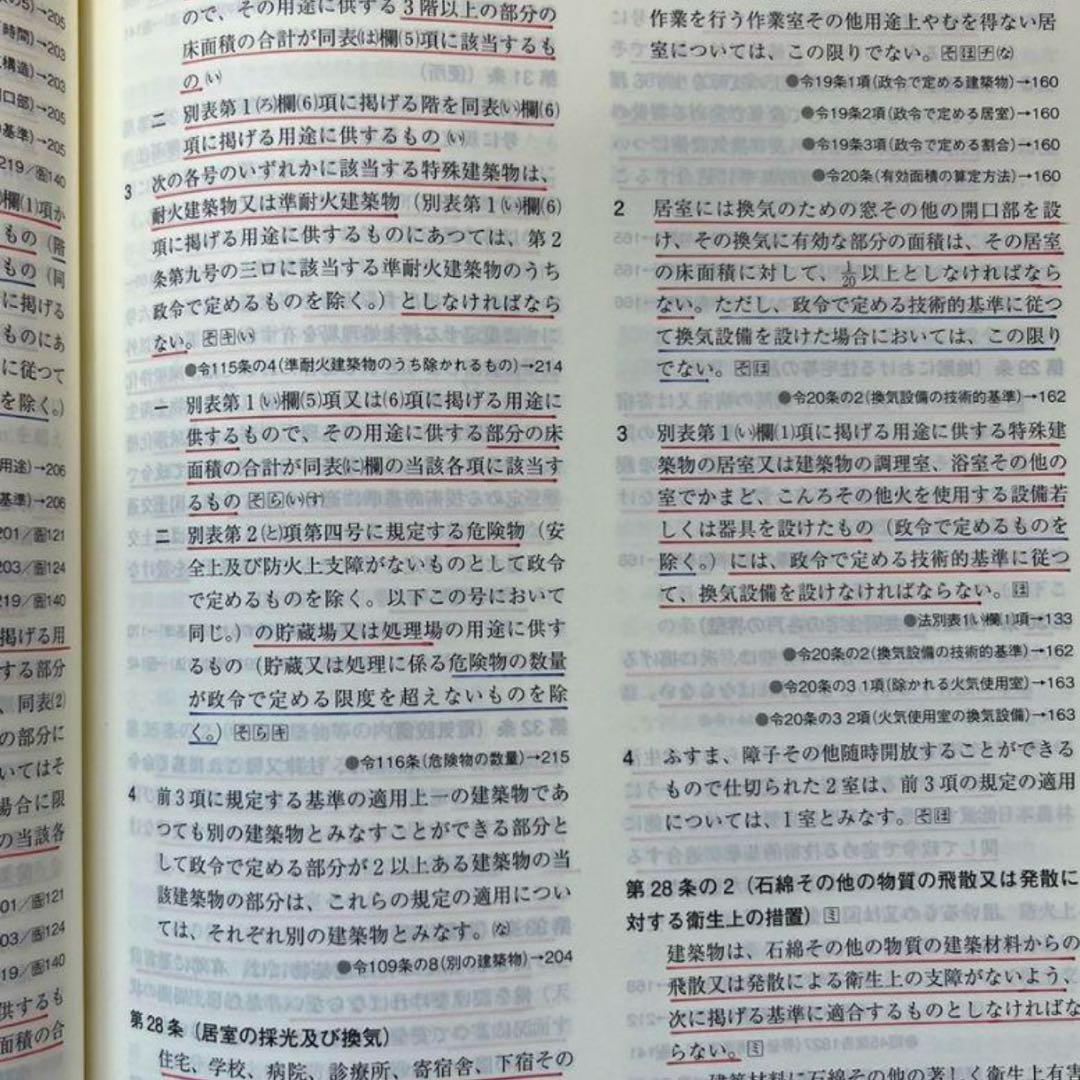 の5)→205
時間)→203
構造)→203
口部)→205
基準)→205
219/圖140
欄(1)項か
もの(階
もの(同
に掲げる
ものにあ
に従つて
を除く。)
用途)→206
基準)→206
201/圖121
203/圖124
219/圖140
掲げる用
する部分
、同表(2)
の部分に
いてはそ
場合に限
の当該各
01/圖121
03/圖124
19/圖140
供するも
面積の合
ので、その用途に供する3階以上の部分の
床面積の合計が同表(は)欄(5)項に該当するも
の(い)
二 別表第1(ろ)欄(6)項に掲げる階を同表(い)欄(6)
項に掲げる用途に供するもの(い)
3 次の各号のいずれかに該当する特殊建築物は、
耐火建築物又は準耐火建築物(別表第1(い)欄(6)
項に掲げる用途に供するものにあつては、第2
条第九号の三ロに該当する準耐火建築物のうち
政令で定めるものを除く。)としなければなら
ない。そキ(い)
●令115条の4(準耐火建築物のうち除かれるもの)→214
一 別表第1(い)欄(5)項又は(6)項に掲げる用途に
供するもので、その用途に供する部分の床
面積の合計が同表(に)欄の当該各項に該当す
るもの そら(い)(す)
二 別表第2(と)項第四号に規定する危険物(安
全上及び防火上支障がないものとして政令
で定めるものを除く。以下この号において
同じ。)の貯蔵場又は処理場の用途に供す
るもの(貯蔵又は処理に係る危険物の数量
が政令で定める限度を超えないものを除
く。)そらキ
●令116条(危険物の数量)→215
4 前3項に規定する基準の適用上一の建築物であ
つても別の建築物とみなすことができる部分と
して政令で定める部分が2以上ある建築物の当
該建築物の部分は、これらの規定の適用につい
ては、それぞれ別の建築物とみなす。(な)
●令109条の8(別の建築物)→204
第28条(居室の採光及び換気)
住宅、学校、病院、診療所、寄宿舎、下宿その
作業を行う作業室その他用途上やむを得ない居
室については、この限りでない。そほチ(な)
●令19条1項(政令で定める建築物)→160
●令19条2項(政令で定める居室)→160
●令19条3項(政令で定める割合)→160
●令20条(有効面積の算定方法)→160
2 居室には換気のための窓その他の開口部を設
け、その換気に有効な部分の面積は、その居室
の床面積に対して、1/20以上としなければなら
ない。ただし、政令で定める技術的基準に従つ
て換気設備を設けた場合においては、この限り
でない。そほ
●令20条の2(換気設備の技術的基準)→162
3 別表第1(い)欄(1)項に掲げる用途に供する特殊建
築物の居室又は建築物の調理室、浴室その他の
室でかまど、こんろその他火を使用する設備若
しくは器具を設けたもの(政令で定めるものを
除く。)には、政令で定める技術的基準に従つ
て、換気設備を設けなければならない。ほ
●法別表1(い)欄(1)項→133
●令20条の2(換気設備の技術的基準)→162
●令20条の3 1項(除かれる火気使用室)→163
●令20条の3 2項(火気使用室の換気設備)→163
4 ふすま、障子その他随時開放することができる
もので仕切られた2室は、前3項の規定の適用
については、1室とみなす。そほ
第28条の2(石綿その他の物質の飛散又は発散に
対する衛生上の措置)ミ
建築物は、石綿その他の物質の建築材料からの
飛散又は発散による衛生上の支障がないよう、
次に掲げる基準に適合するものとしなければな
らない。ミ
建築材料に石綿その他の著しく衛生上有害